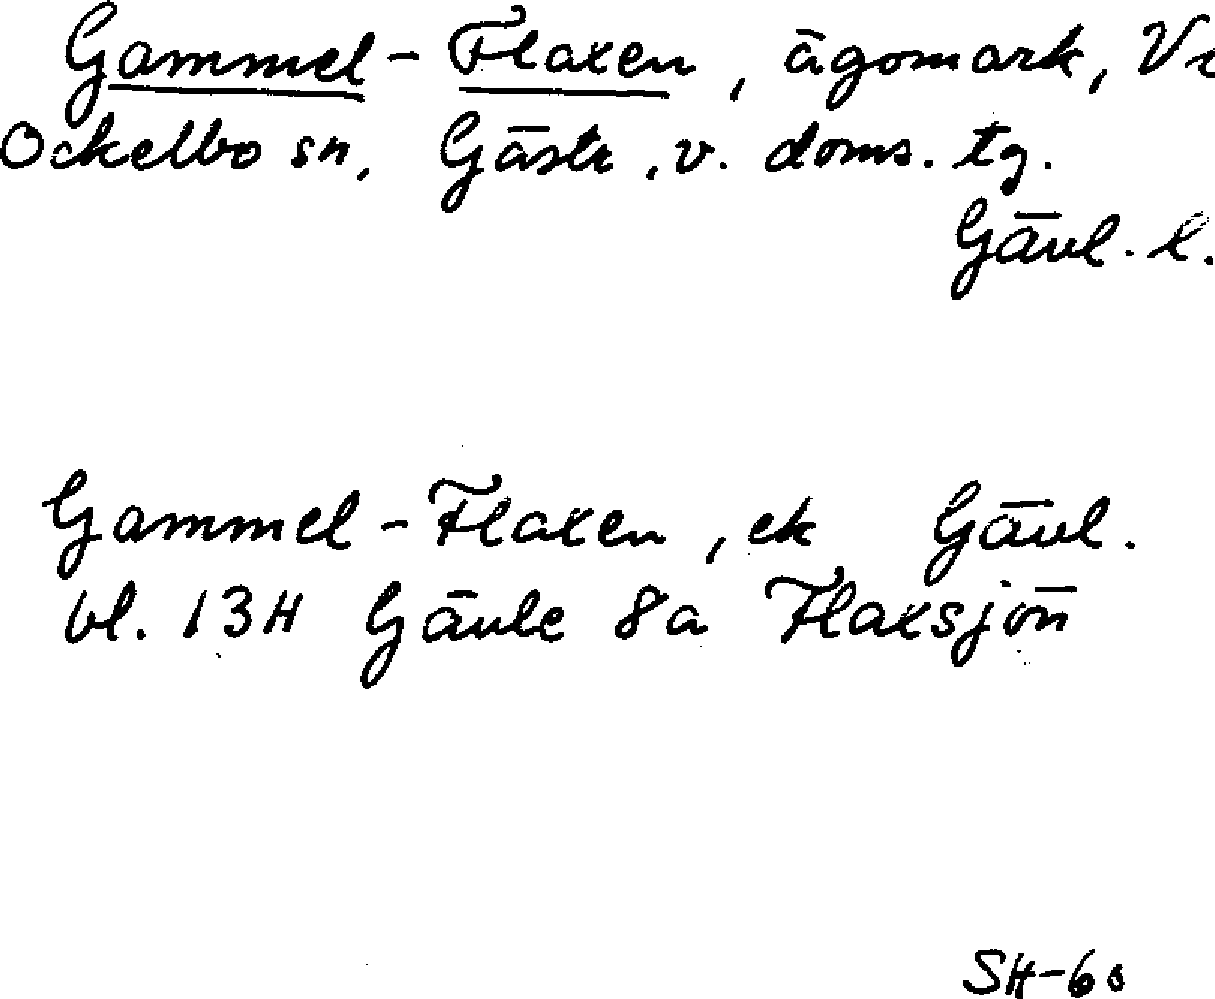 Gammel-Flaxen, ägomark, Vi
Ockelbo sn, Gästr, v. doms. tg.
Gävl. l.
Gammel-Flaxen, ek Gävl.
bl. 13H Gävle 8a Flaxsjön
SH-60